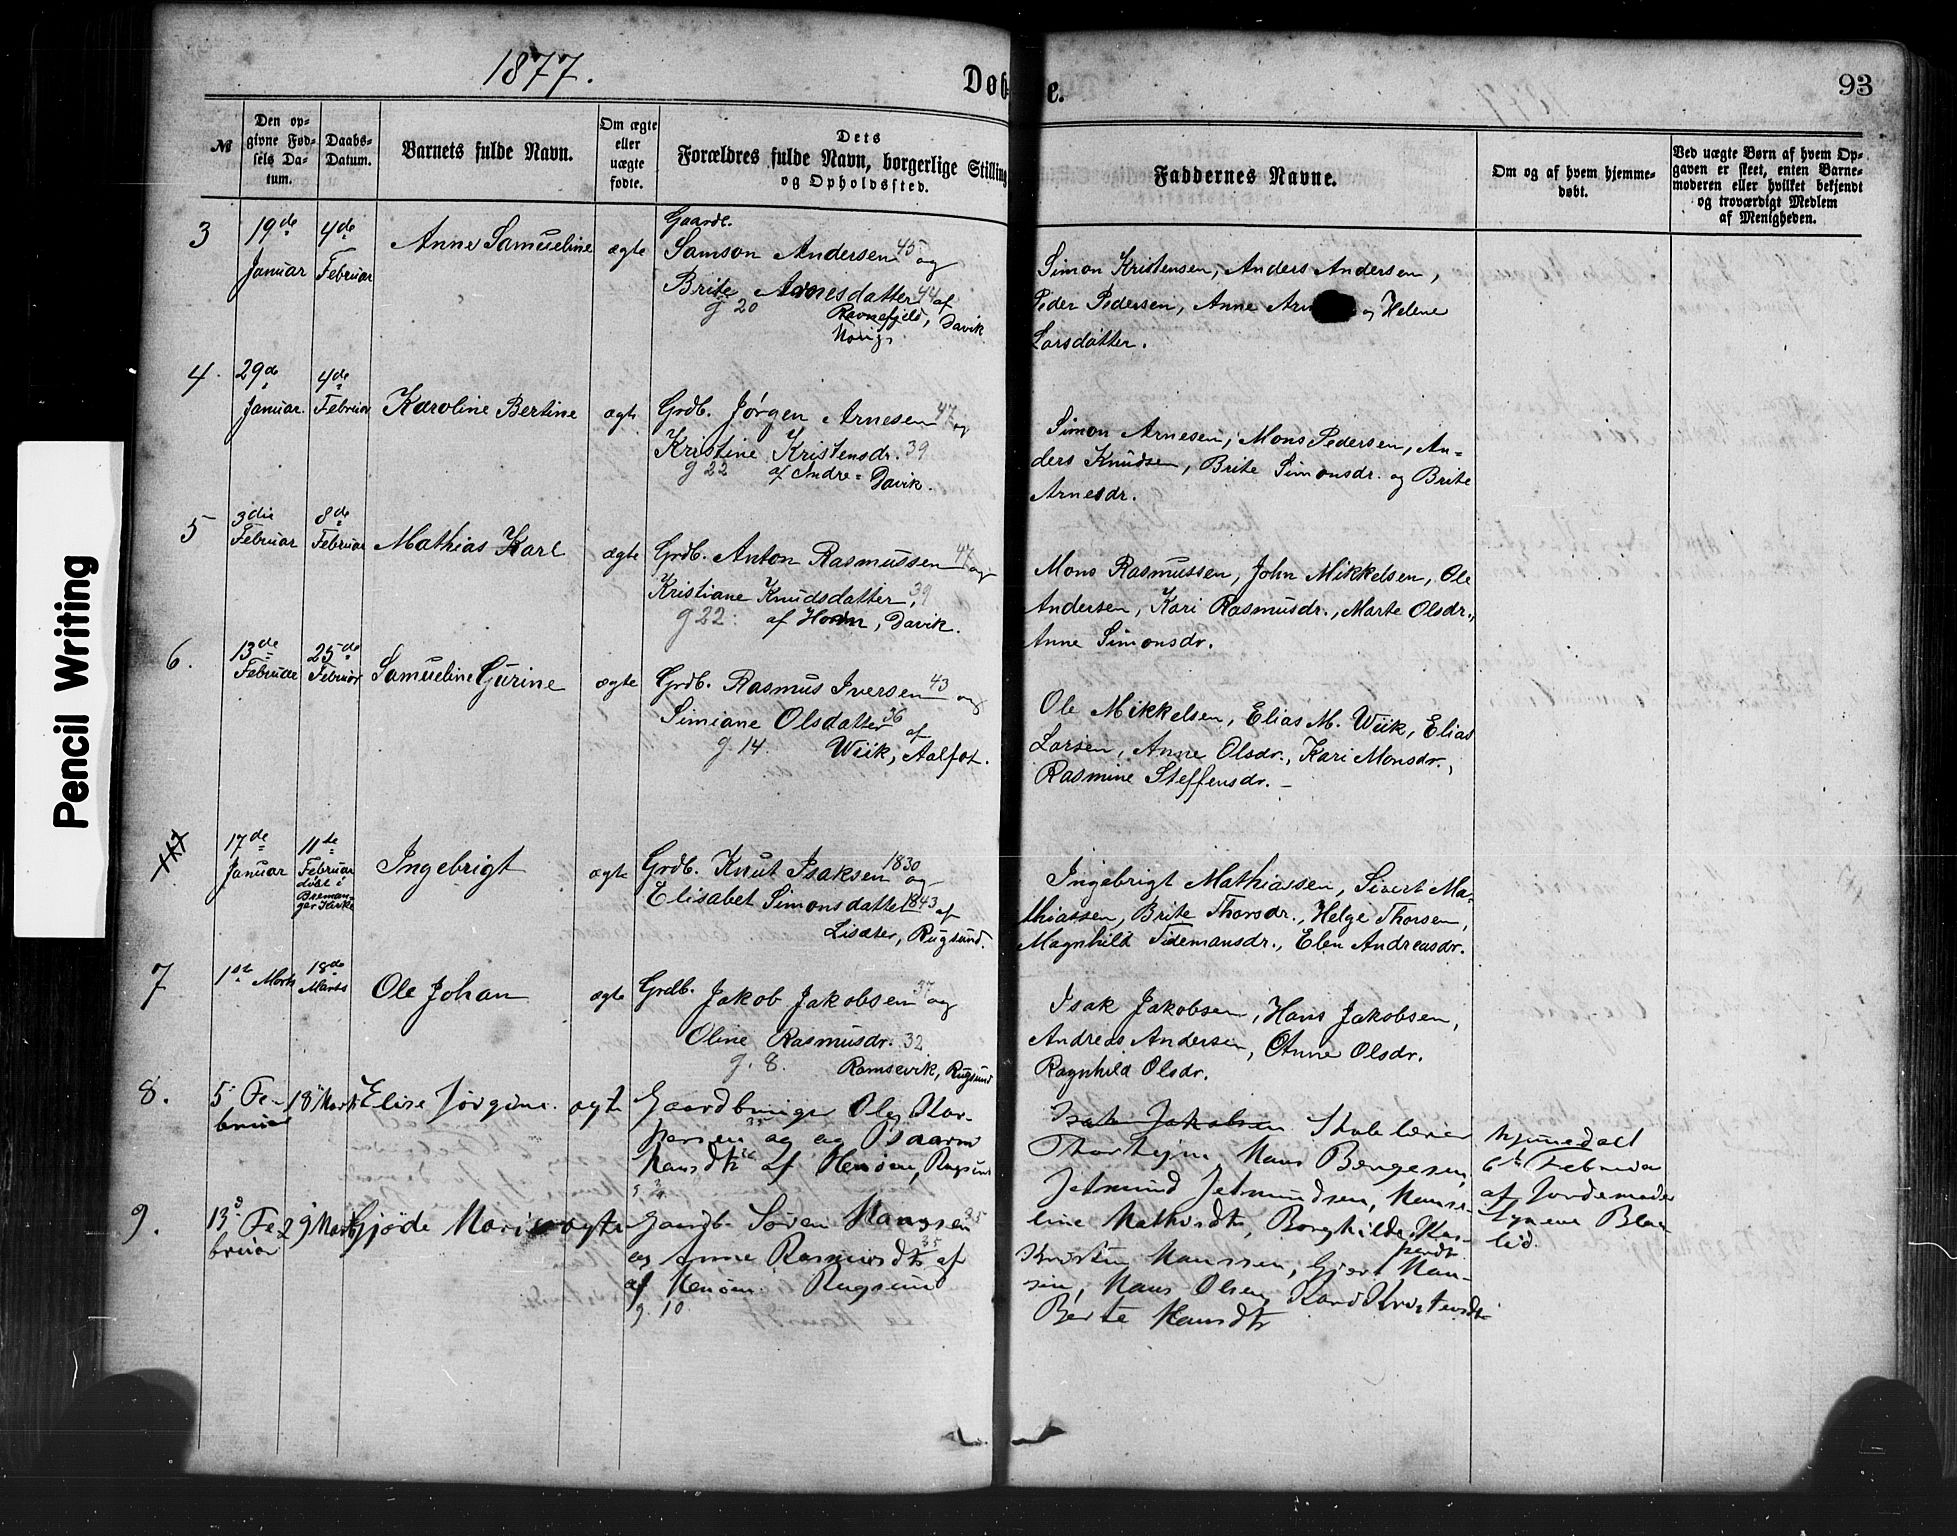 Pencil Writing
1877.
Døbte.
93
№
Den opgivne Fødsels Datum.
Daabs-Datum.
Barnets fulde Navn.
Om ægte eller uægte fødte.
Dets Forældres fulde Navn, borgerlige Stilling og Opholdssted.
Faddernes Navne.
Om og af hvem hjemmedøbt.
Ved uægte Børn af hvem Opgaven er skeet, enten Barnemoderen eller hvilket bekjendt og troværdigt Medlem af Menigheden.
3
19de Januar
4de Februar
Anne Samueline
ægte
Gaardb.
Samson Andersen 45 og
Brite Arnesdatter 44 af
g 20 Ravnefjeld, Davik
Simon Kristensen, Anders Andersen,
Peder Pedersen, Anne og Helene
Larsdatter.
4.
29de Januar.
4de Februar
Karoline Bertine
ægte
Grdb. Jørgen Arnesen 47 og
Kristine Kristensdr. 39
g 22 af Indre= Davik.
Simon Arnesen, Mons Pedersen, An=
ders Knudsen, Brite Simonsdr. og Brite
Arnesdr.
5
3die Februar
8de Februar
Mathias Karl
ægte
Grdb. Anton Rasmussen 47 og
Kristiane Knudsdatter, 39
g 22. af Hornn, Davik.
Mons Rasmussen, John Mikkelsen, Ole
Andersen, Kari Rasmusdr., Marte Olsdr.,
Anne Simonsdr.
6.
13de Februar
25de Februar
Samueline Gurine
ægte
Grdb. Rasmus Iversen 43 og
Simiane Olsdatter 36 af
g 14. Wiik, Aalfot.
Ole Mikkelsen, Elias M. Wiik, Elias
Larsen, Anne Olsdr., Kari Monsdr.,
Rasmine Steffensdr. –
17de Januar
11te Februar døbt i Bremanger Kirke
Ingebrigt
ægte
Grdb. Knut Isaksen 1830 og
Elisabet Simonsdatter 1843 af
Lisæter, Rugsund.
Ingebrigt Mathiassen, Sivert Ma-
thiassen, Brite Thorsdr., Helge Thorsen,
Magnhild Tidemansdr., Elen Andreasdr.
7
1ste Marts
18de Marts
Ole Johan
ægte
Grdb. Jakob Jakobsen 37 og
Oline Rasmusdr. 32
g. 8. Ramsevik, Rugsund
Isak Jakobsen, Hans Jakobsen,
Andreas Andersen, Anne Olsdr.
Ragnhild Olsdr.
8.
5 Februar
18 Marts
Elise Jørgine.
ægte
Gaardbruger Ole Kas-
persen 35 og og
Hansdtr af Henøen, Rugsund
Isak Jakobsen Skolelærer
Hans Børgesen,
Jetmund Jetmundsen, Hanse-
line Mathisdtr, Borghilde Kas-
persdtr.
hjemmedøbt
6te Februar
af Jordemoder
lid.
9.
13de Februar
29 Marts
Gjøde Marie
ægte
Gaardb. Søren Hanssen 35
og Anne Rasmusdtr 35 af
af Henøen. Rugsund
g. 10
Kristen Hanssen, Gjert Han-
sen, Hans Olsen, Kristensdtr
Berte Hansdtr